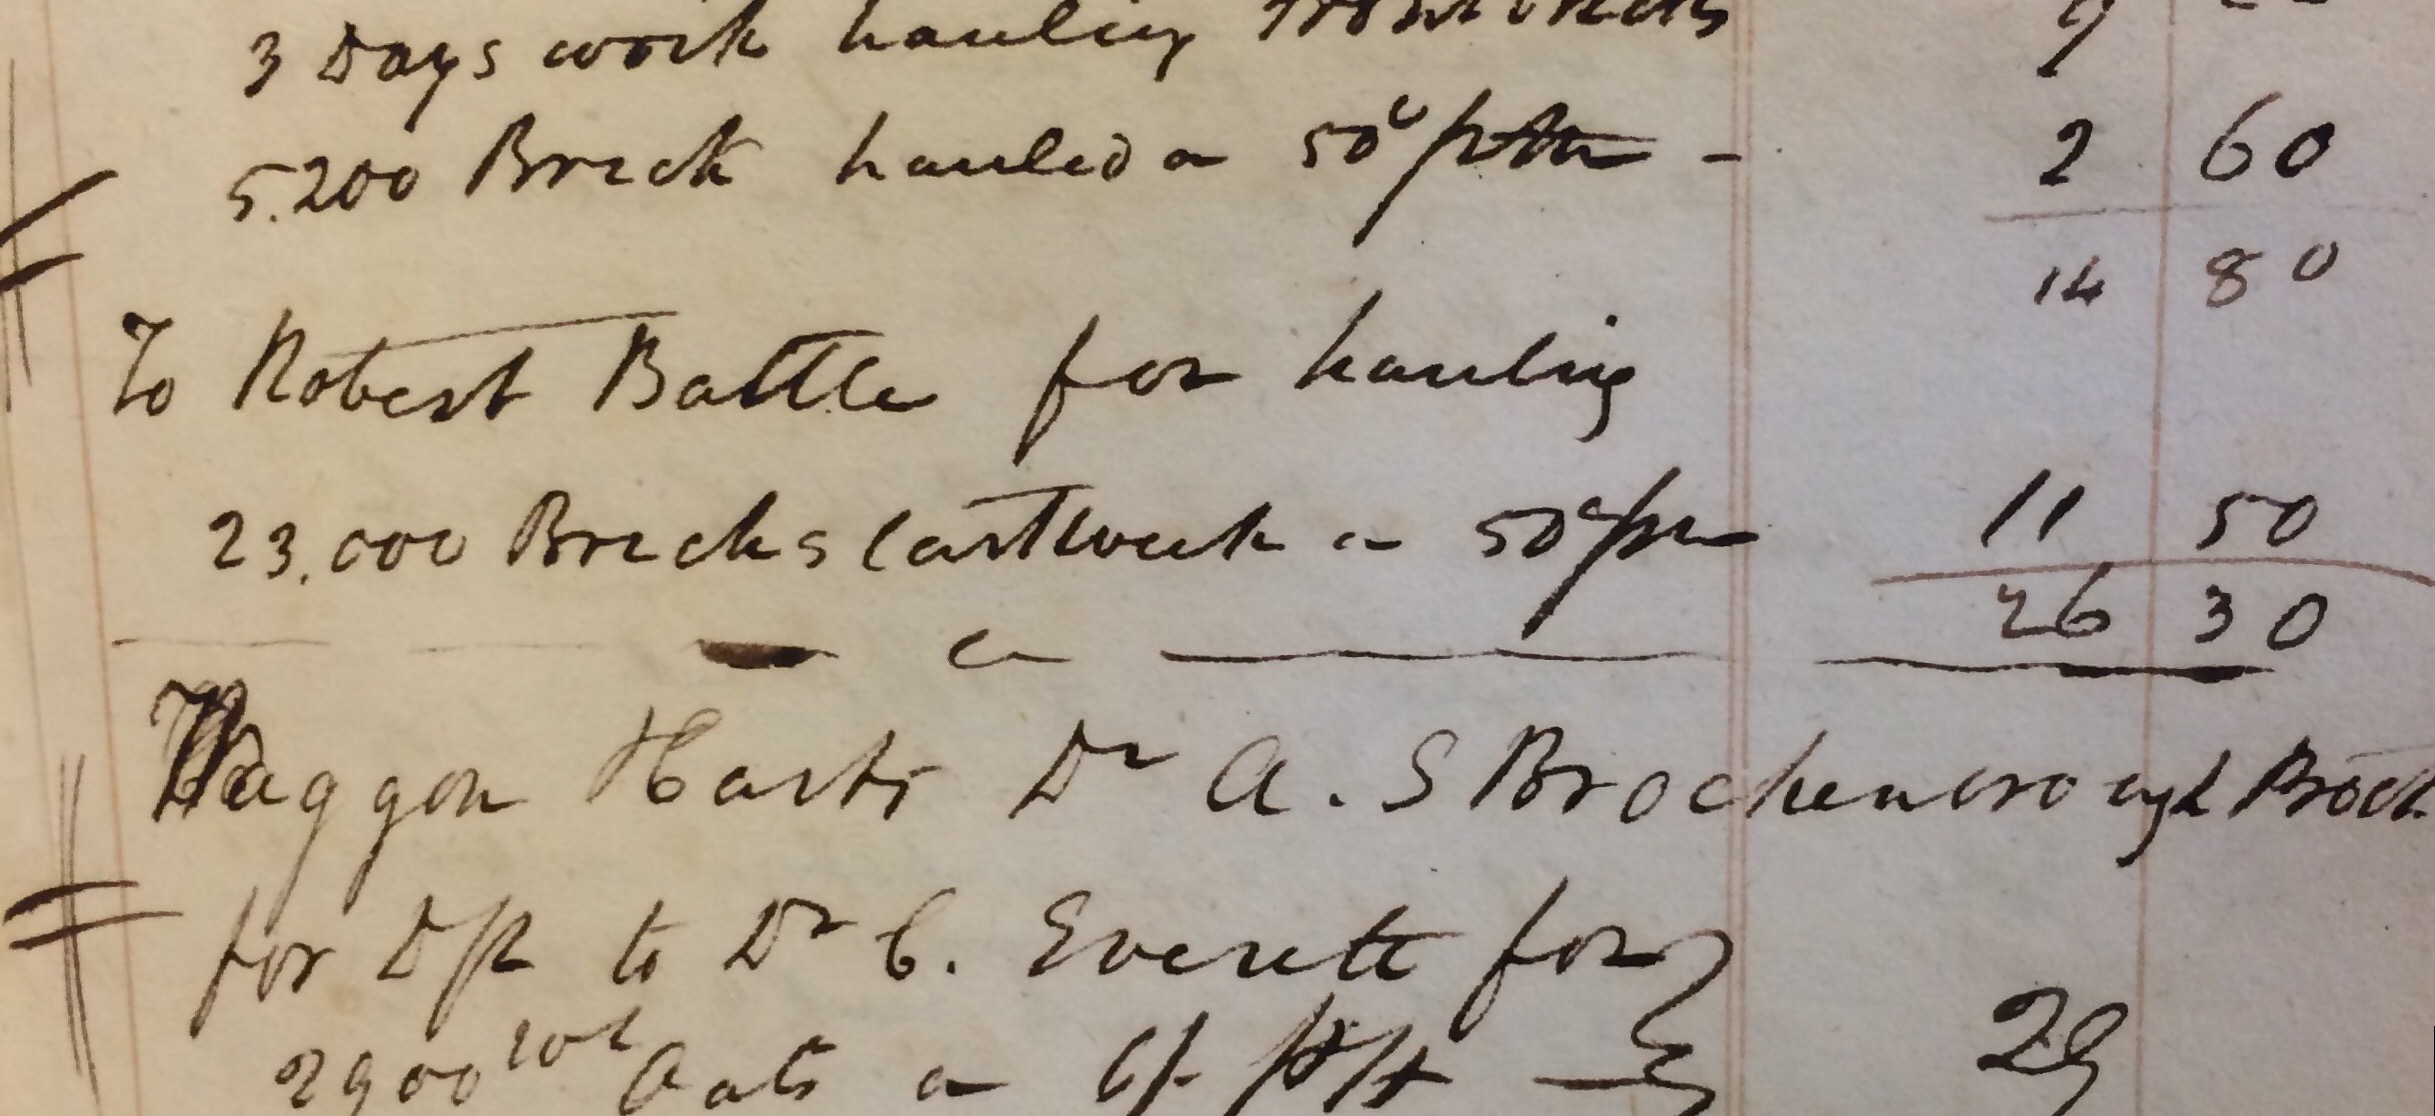 3 Days work hauling
5.200 Brick hauled a 50c p - 2 60
14 80
To Robert Battle for hauling
23.000 Bricks last week a 50c pr 11 50
26 30
Waggon & Carts Dr A. S Brockenbrough Proct
for Dft to Dr C. Everett for
2900 wt Oats a 6/- 29